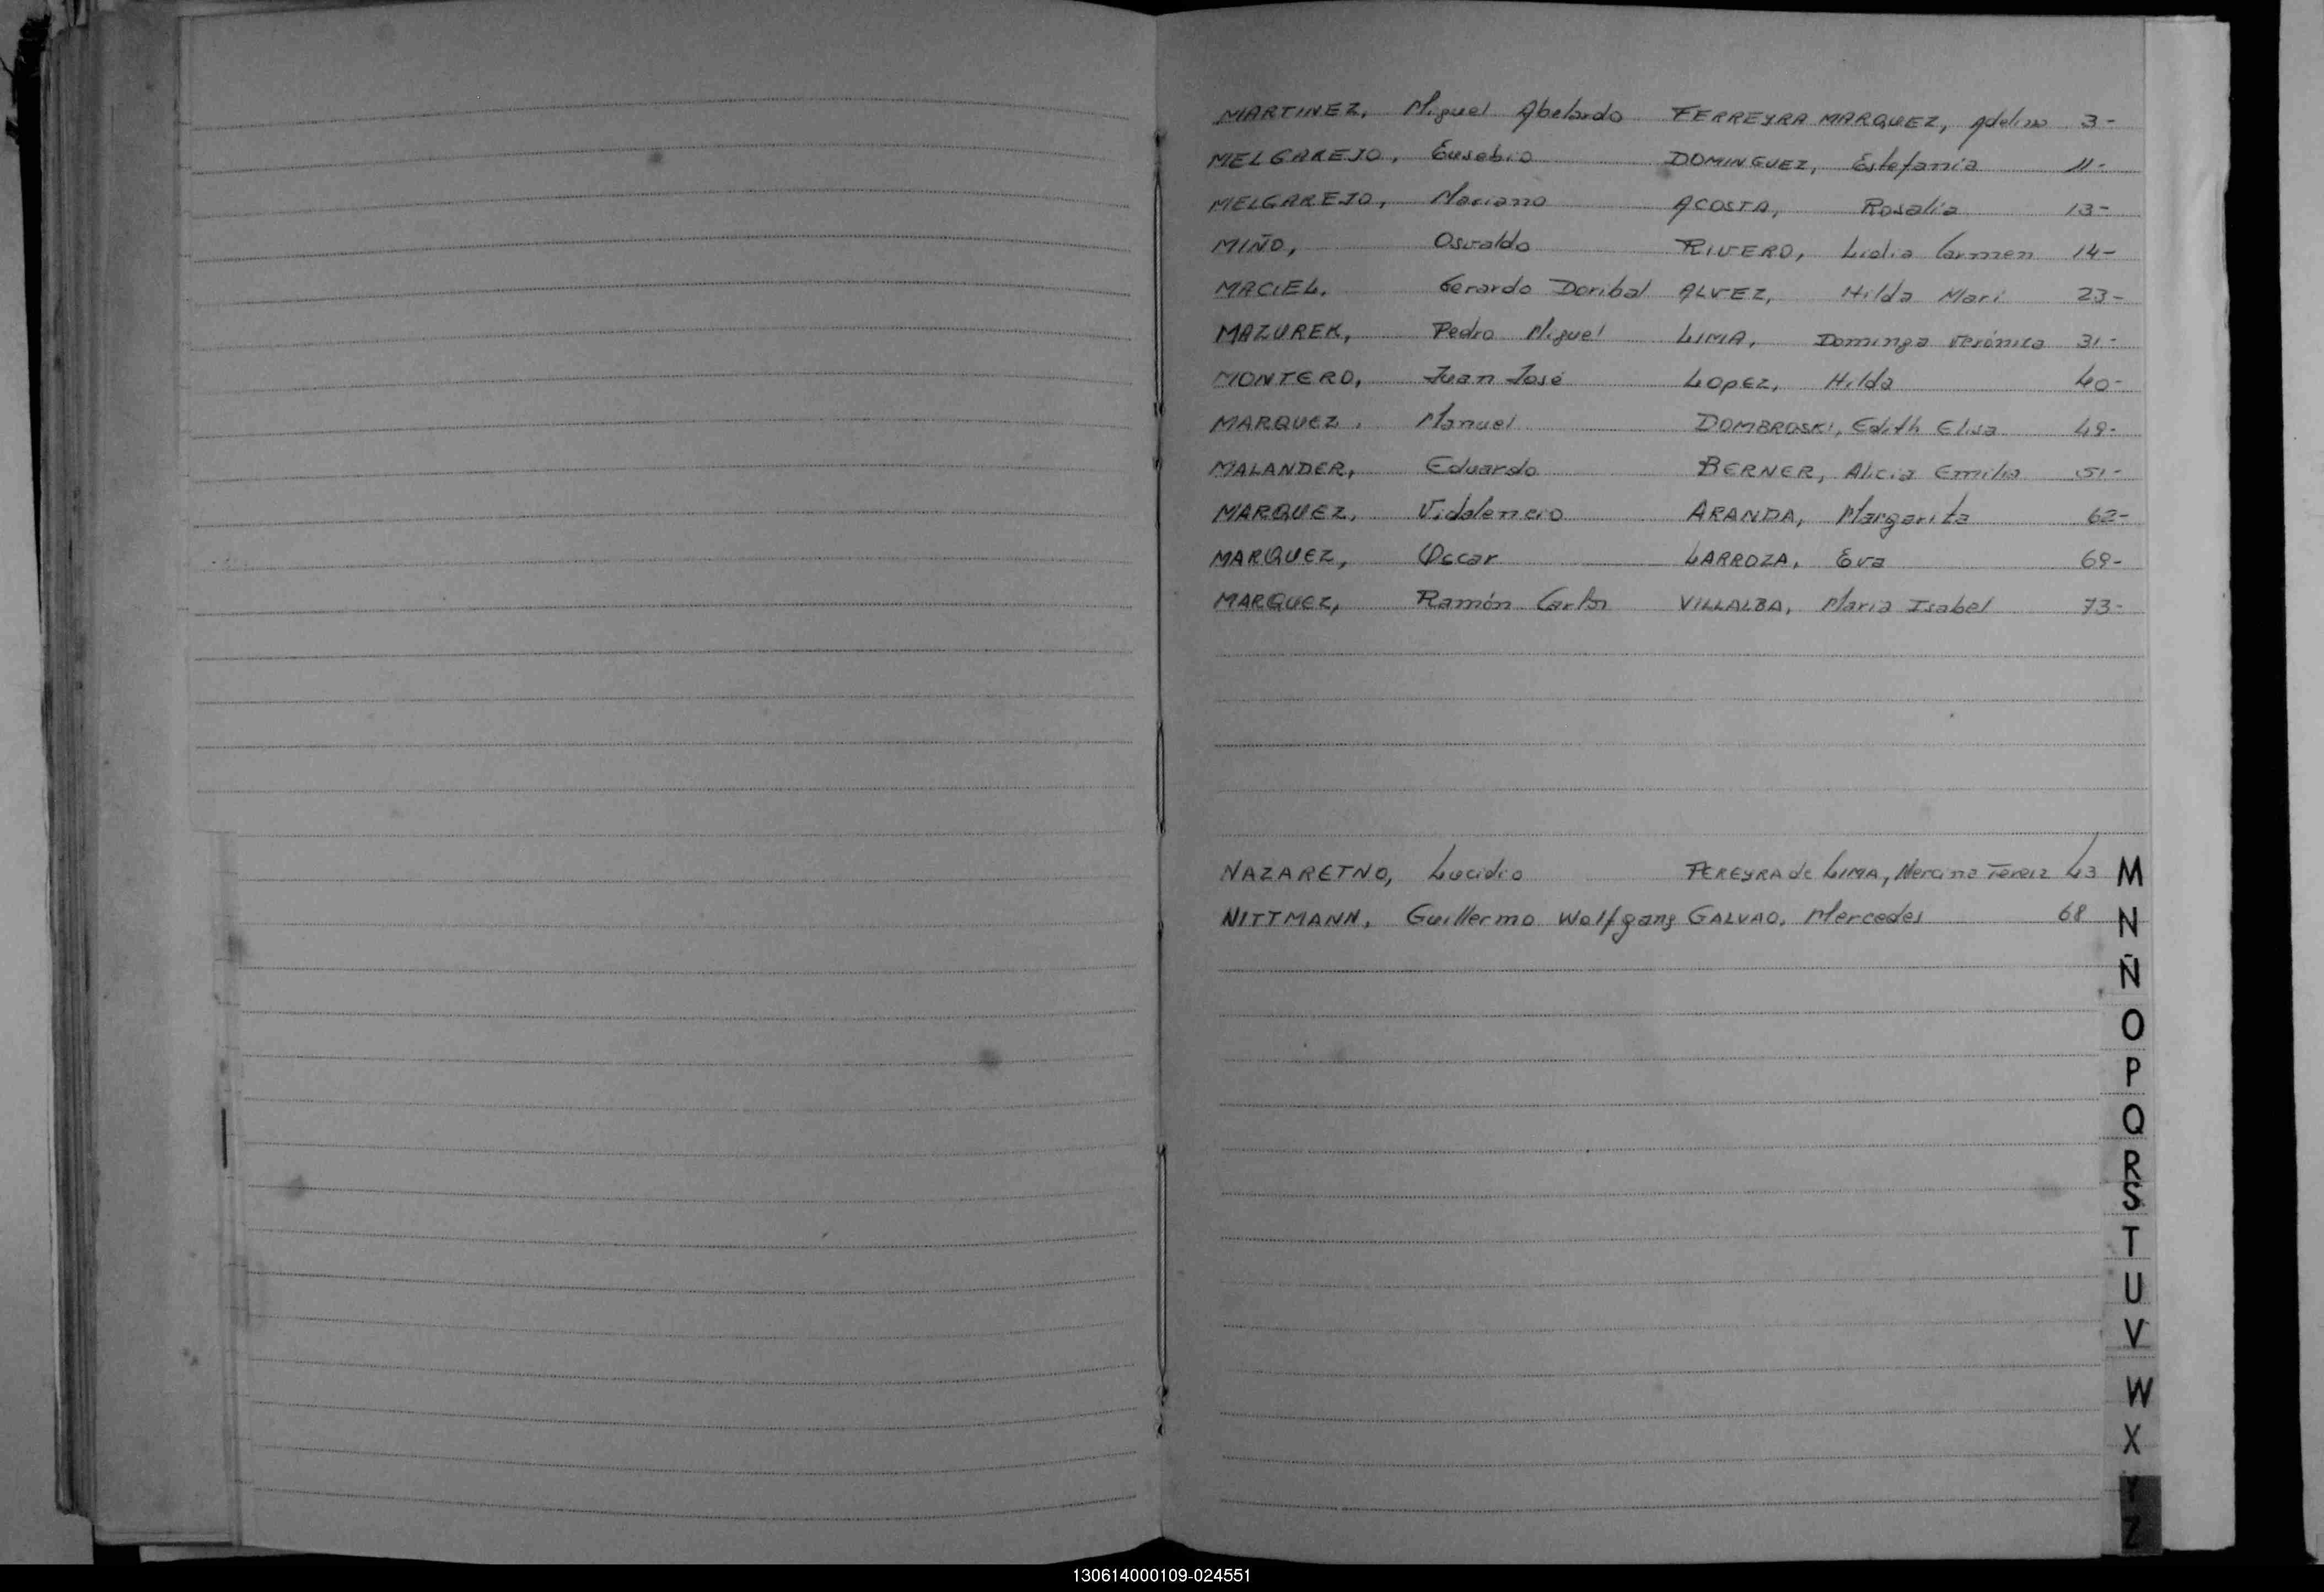 MARTINEZ, Miguel Abelardo FERREYRA MARQUEZ, Adelina 3-
MELGAREJO, Eusebio DOMINGUEZ, Estefania 11-
MELGAREJO, Mariano ACOSTA, Rosalia 13-
MIÑO, Osvaldo RIVERO, Lidia Carmen 14-
MACIEL, Gerardo Doribal ALVEZ, Hilda Mari 23-
MAZUREK, Pedro Miguel LIMA, Dominga Verónica 31-
MONTERO, Juan José LOPEZ, Hilda 40-
MARQUEZ, Manuel DOMBROSKI, Edith Elisa 49-
MALANDER, Eduardo BERNER, Alicia Emilia 51-
MARQUEZ, Vidalencio ARANDA, Margarita 62-
MARQUEZ, Oscar LARROZA, Eva 69-
MARQUEZ, Ramón Carlos VILLALBA, Maria Isabel 73-
NAZARETNO, Lucidio PEREYRA de LIMA, 43
NITTMANN, Guillermo Wolfgang GALVAO, Mercedes 68
M
N
Ñ
O
P
Q
R
S
T
U
V
W
X
Y
Z
130614000109-024551